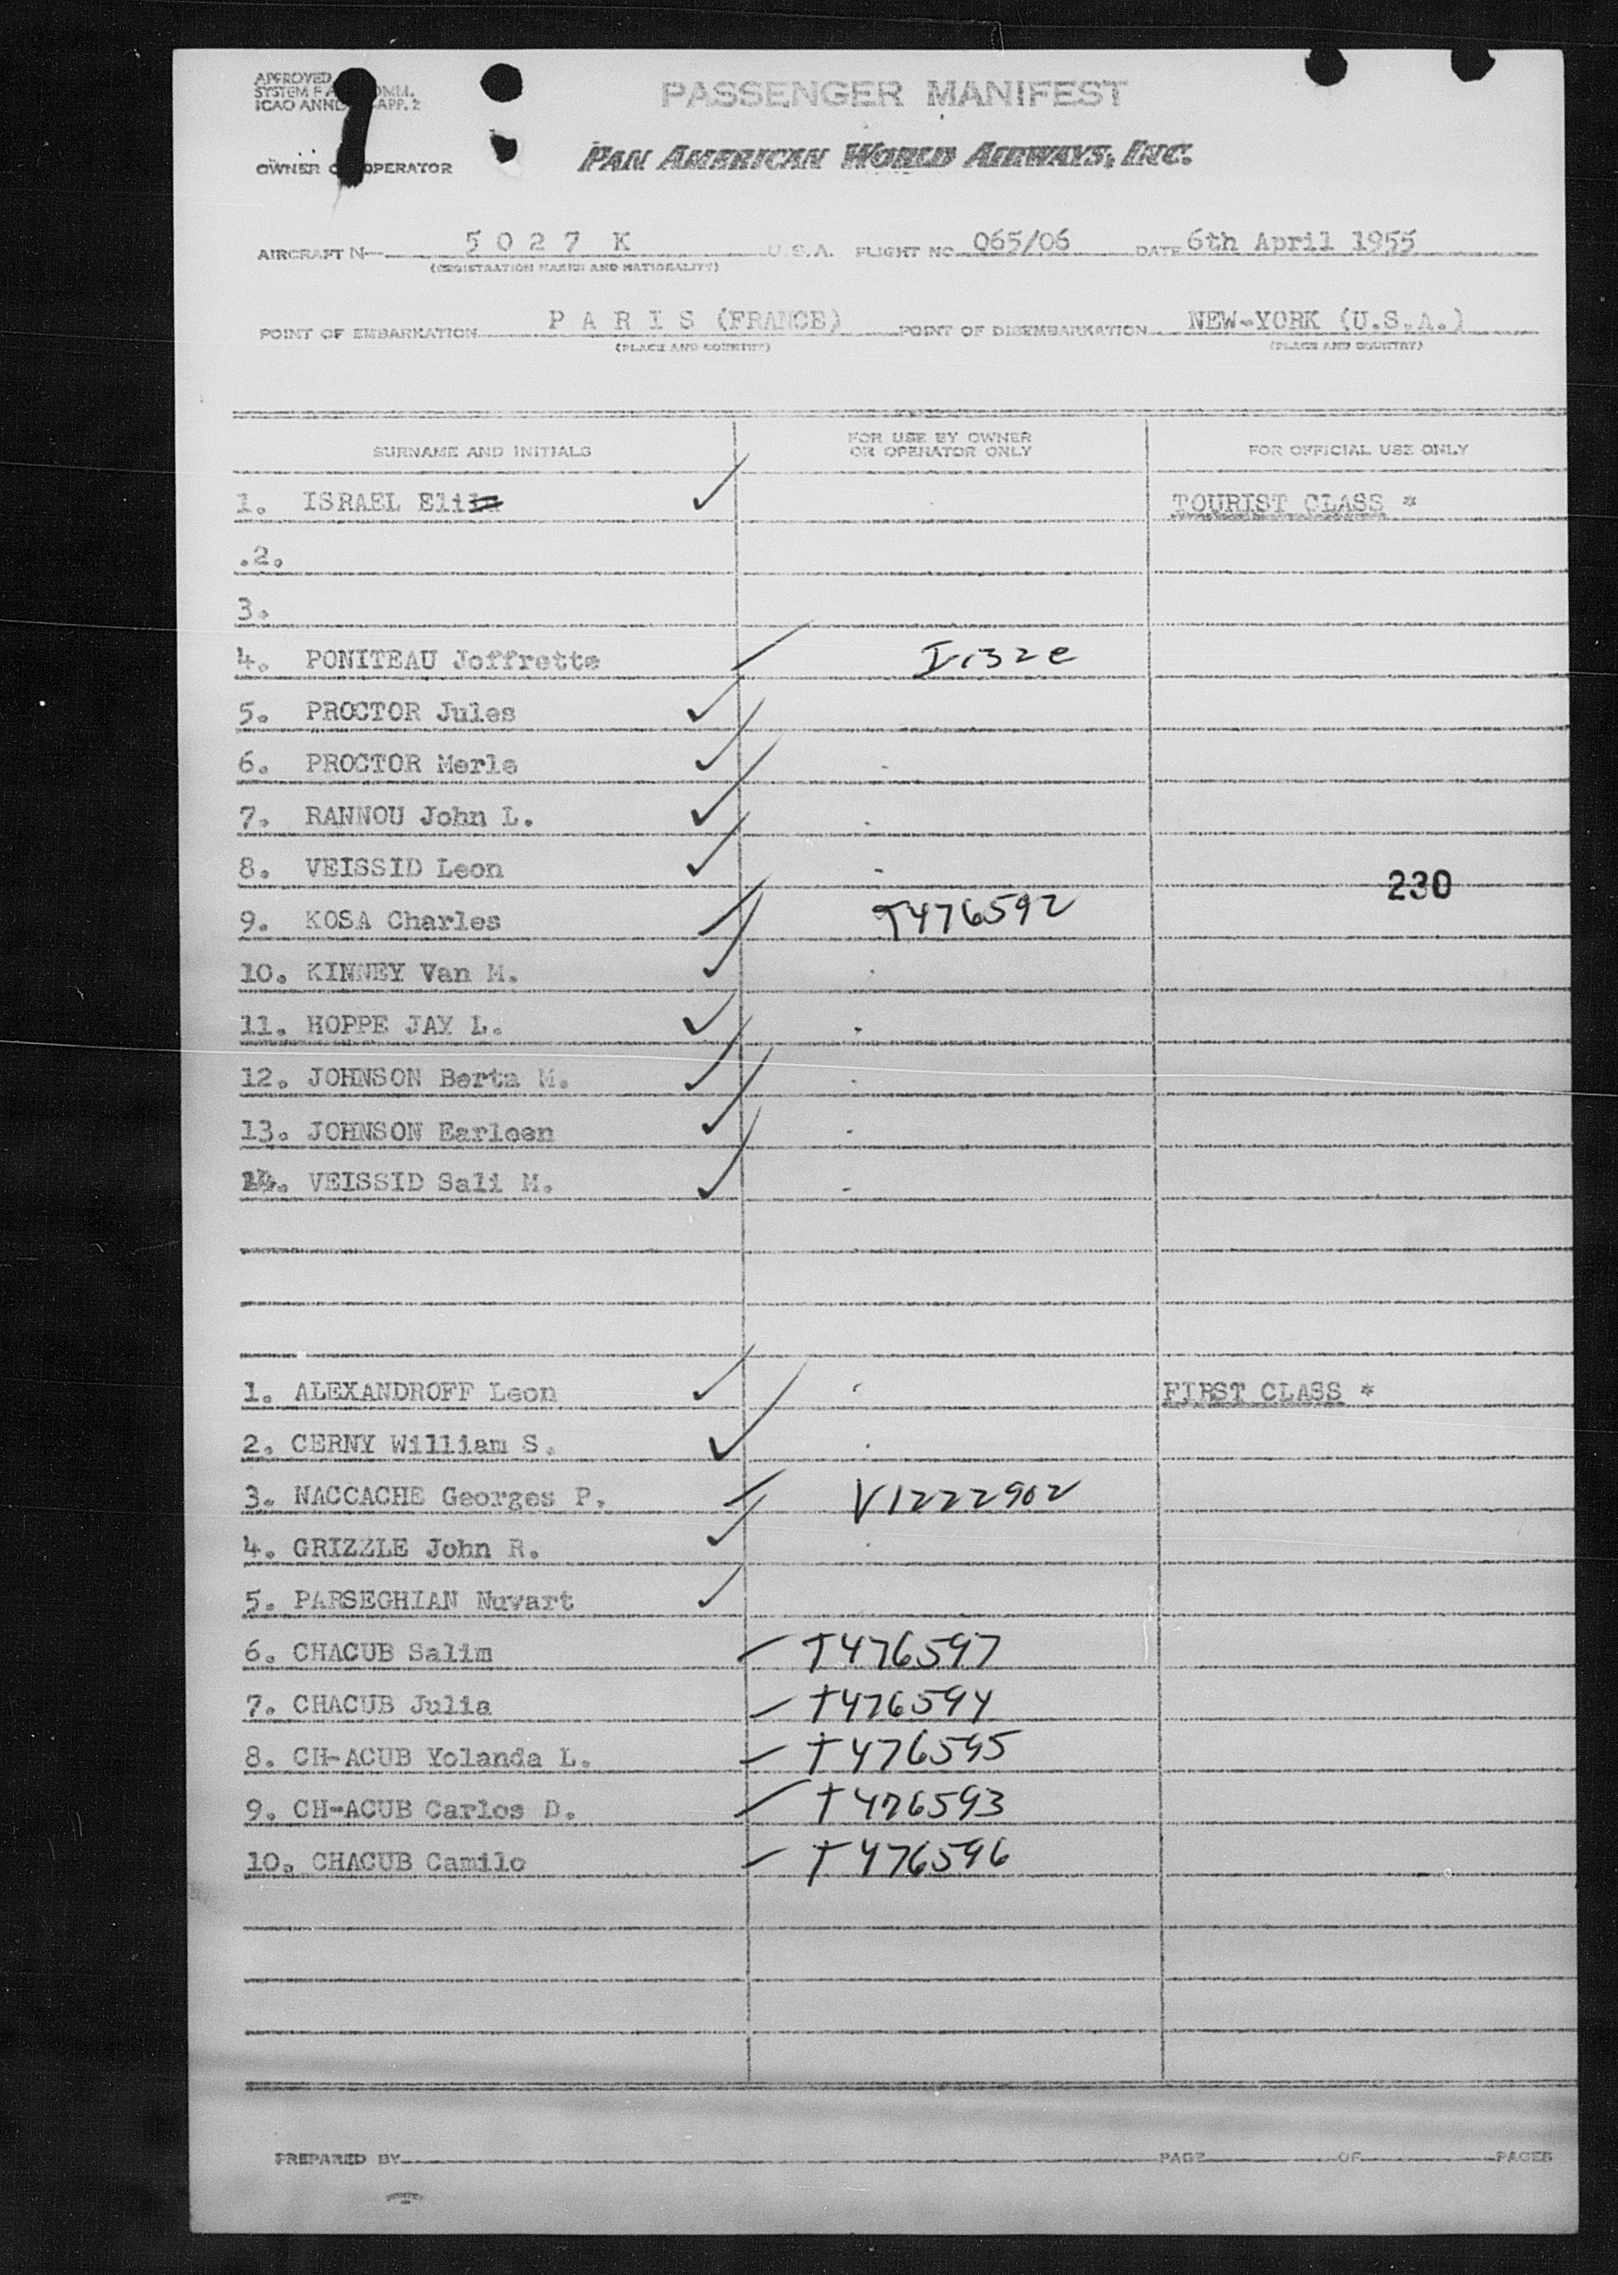 APPROVED
SYSTEM
ICAO APP. 2
PASSENGER MANIFEST
OWNER OPERATOR
PAN AMERICAN WORLD AIRWAYS, INC.
AIRCRAFT N 5 0 2 7 K U.S.A. FLIGHT NO 065/06 DATE 6th April 1955
(REGISTRATION MARKS AND NATIONALITY)
POINT OF EMBARKATION P A R I S (FRANCE) POINT OF DISEMBARKATION NEW-YORK (U.S.A.)
(PLACE AND COUNTRY) (PLACE AND COUNTRY)
SURNAME AND INITIALS FOR USE BY OWNER OR OPERATOR ONLY FOR OFFICIAL USE ONLY
1. ISRAEL Eli TOURIST CLASS *
.2.
3.
4. PONITEAU Joffrette
5. PROCTOR Jules
6. PROCTOR Merle
7. RANNOU John L.
8. VEISSID Leon
230
9. KOSA Charles T476592
10. KINNEY Van M.
11. HOPPE JAY L.
12. JOHNSON Berta M.
13. JOHNSON Earleen
14. VEISSID Sali M.
1. ALEXANDROFF Leon FIRST CLASS *
2. CERNY William S.
3. NACCACHE Georges P. V1222902
4. GRIZZLE John R.
5. PARSEGHIAN Nuvart
6. CHACUB Salim T476597
7. CHACUB Julia T476594
8. CH-ACUB Yolanda L. T476595
9. CH-ACUB Carlos D. T476593
10. CHACUB Camilo T476596
PREPARED BY PAGE OF PAGES